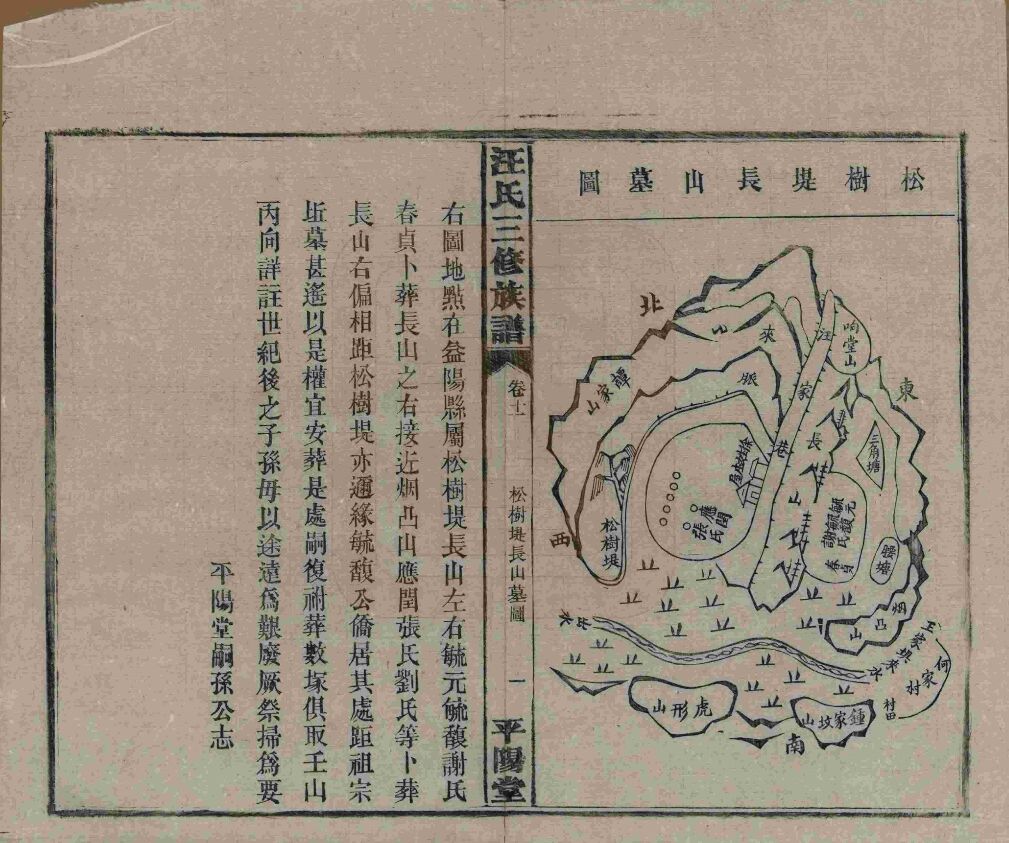 松樹堤長山墓圖
北
東
西
南
响堂山
汪家巷
來脉
山
譚家山
長山
三角塘
腰塘
松樹堤
應閏
張氏
毓元
毓馥
謝氏
春貞
烟凸山
水
來水
何家村
村田
虎形山
鍾家坟山
汪氏三修族譜
卷十一
松樹堤長山墓圖
一
平陽堂
右圖地點在益陽縣屬松樹堤長山左右毓元毓馥謝氏
春貞卜葬長山之右接近烟凸山應閏張氏劉氏等卜葬
長山右偏相距松樹堤亦邇緣毓馥公僑居其處距祖宗
坵墓甚遙以是權宜安葬是處嗣復祔葬數塚俱取壬山
丙向詳註世紀後之子孫毋以途遠爲艱廢厥祭掃爲要
平陽堂嗣孫公志